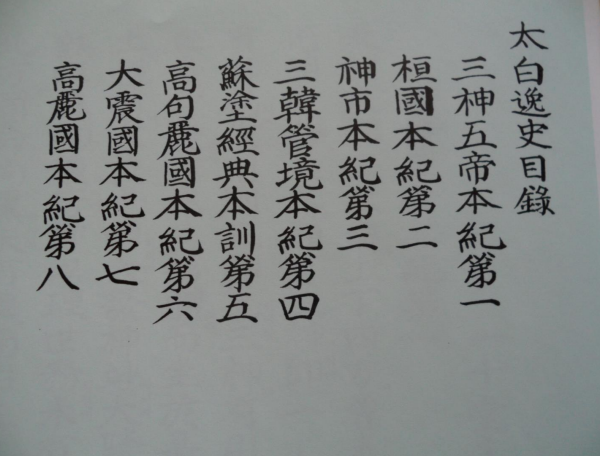 太白逸史目錄
三神五帝本紀第一
桓國本紀第二
神市本紀第三
三韓管境本紀第四
蘇塗經典本訓第五
高句麗國本紀第六
大震國本紀第七
高麗國本紀第八